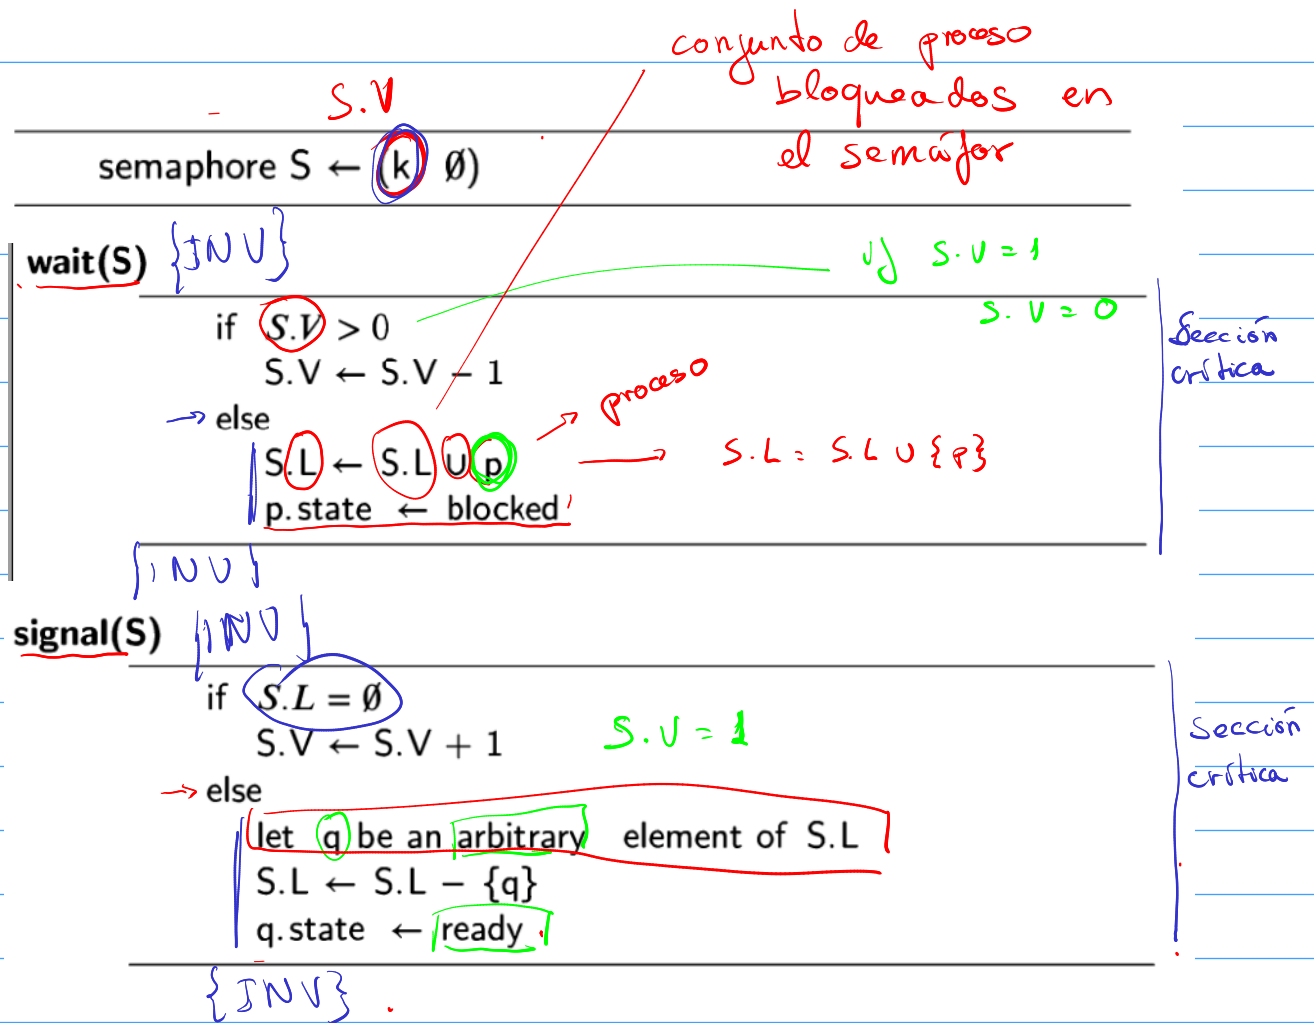 conjunto de proceso
S.V
bloqueados en
el semáfor
semaphore S ← (k, ∅)
wait(S) {INV}
if S.V = 1
S.V = 0
if S.V > 0
S.V ← S.V − 1
Sección
crítica
→ else
proceso
S.L ← S.L ∪ p → S.L = S.L ∪ {p}
p.state ← blocked
{INV}
signal(S) {INV}
if S.L = ∅
S.V ← S.V + 1
S.V = 1
Sección
crítica
→ else
let q be an arbitrary element of S.L
S.L ← S.L − {q}
q.state ← ready
{INV}